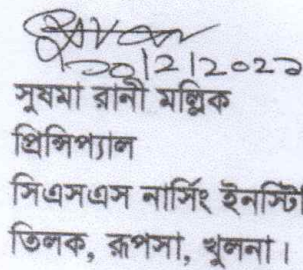 ২০|2|2022
সুষমা রানী মল্লিক
প্রিন্সিপ্যাল
সিএসএস নার্সিং ইনস্টি
তিলক, রূপসা, খুলনা।